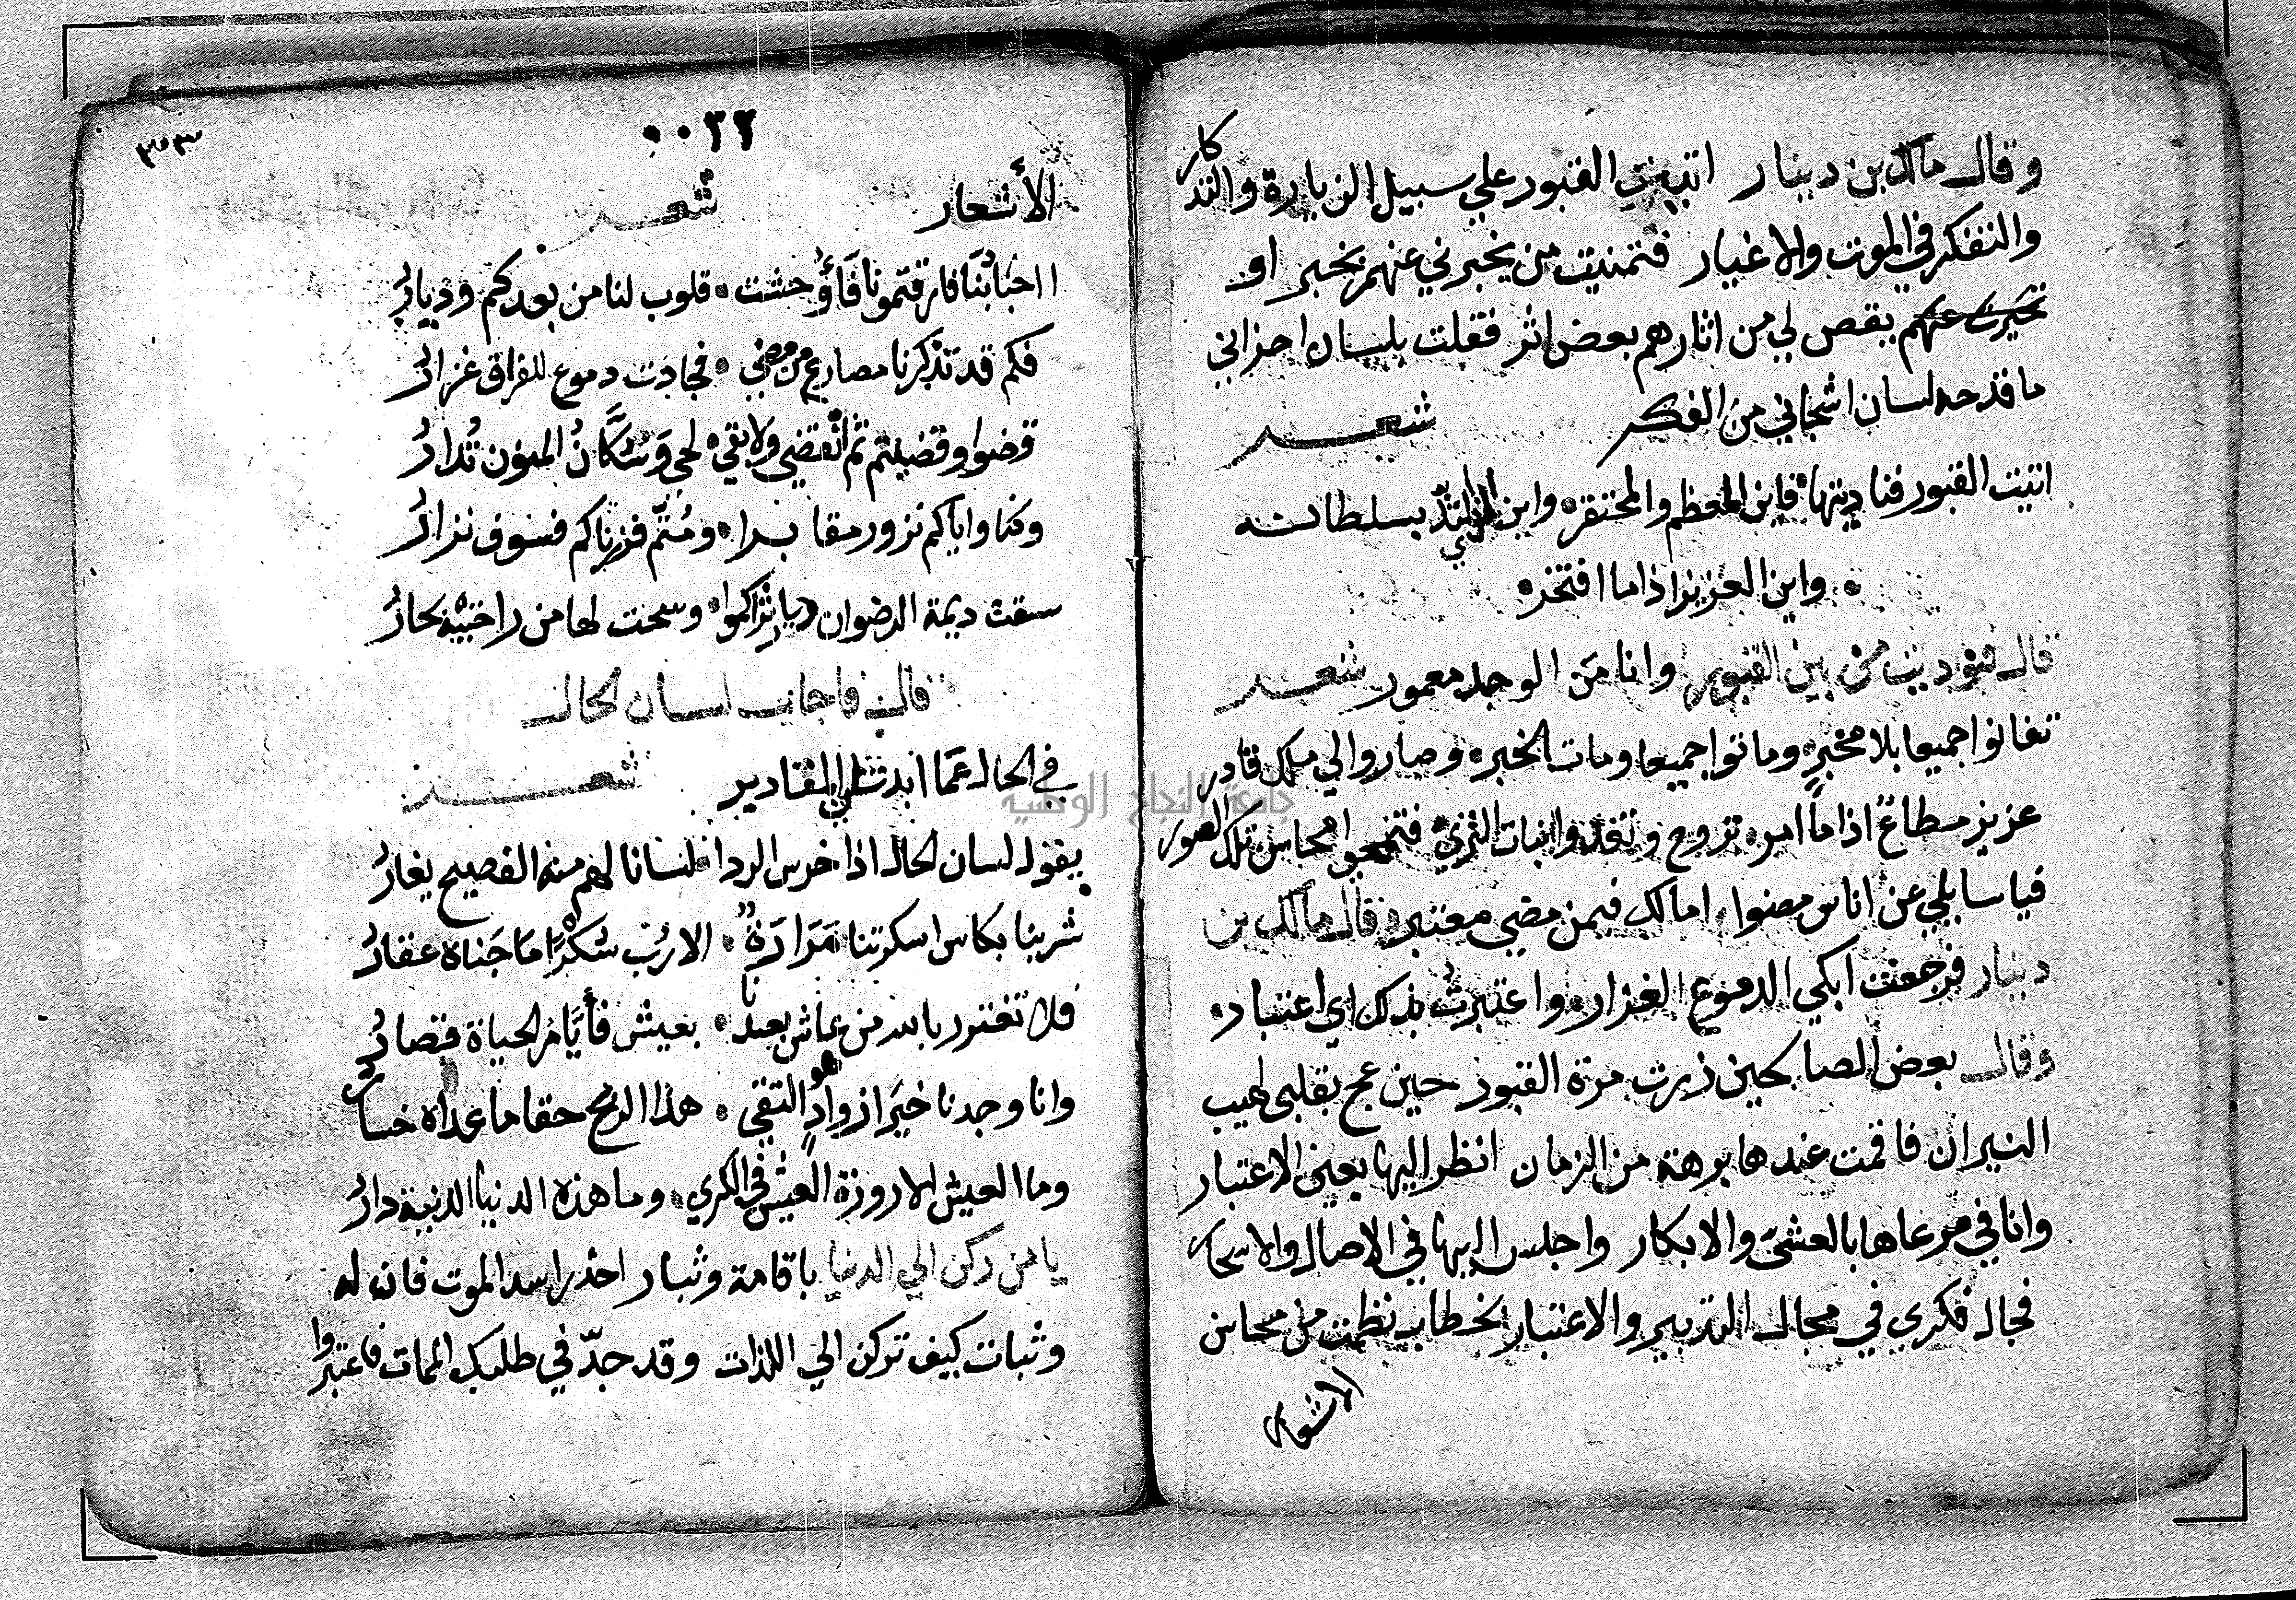 وقال مالك بن دينار اتيت القبور علي سبيل الزيارة والتذكار
والتفكر في الموت والاغيار فتمنيت من يخبرني عنهم بخبر او
تخيرت عنهم يقص لي من اثارهم بعض اثر فقلت بلسان احزاني
ما قدحه لسان اشجاني من الفكر شعر
اتيت القبور فناديتها فاين المعظم والمحتقر واين بسلطانه
واين العزيز اذا ما افتخر
قال فنوديت من بين القبور وانا من الوجد معمور شعر
تفانوا جميعا بلا مخبر وماتوا جميعا ومات الخبر وصاروا الي ملك قادر
عزيز مطاعٌ اذا ما امر تروح وتغدوا بنات الثري فتمحوا محاسن تلك الصور
فيا سايلي عن اناس مضوا امالك فيمن مضي معتبر وقال مالك بن
دينار فرجعت ابكي الدموع الغزار واعتبرت بذلك اي اعتبار
وقال بعض الصالحين زرت مرة القبور حين عج بقلبي لهيب
النيران فاقمت عندها برهة من الزمان انظر اليها بعين الاعتبار
وانا في مرعاها بالعشيّ والابكار واجلس اليها في الاصال والاسحار
فجال فكري في مجال التدبير والاعتبار بخطاب نظمت من محاسن
الاشعار
٠٠٣٢
٣٠٣
الأشعار شعر
ااحبابُنَا فارقتمونا فَأَوُحشت قلوب لنا من بعدكم وديارُ
فكم قد تذكرنا مصارع من مضي فجادت دموع للفراق غزارُ
قضوا وقضيتم ثم انقضي ولا بقي لحي وسُكَّانُ المنون تُدارُ
وكنا واياكم نزور مقابرا ومُتّم فزرناكم فسوف نزارُ
سقت ديمة الرضوان ديار ثراكموا وسحت لها من راحتيه بحارُ
قال فاجاب لسان الحال
في الحال عَما ابدت لي المقادير شعر
يقول لسان الحال اذا خرس الردا لسانا لهم منه الفصيح يغارُ
شربنا بكاس اسكرتنا مَرَارَةً الا رُبّ سُكْرًا مَا جَناه عقارُ
فلا تغترر بالله من عاش بعدنا بعيش فأيَّامُ الحياة قصارُ
وانا وجدنا خيَر ازوادِ التقي هو هذا الربح حقا ما عداه خسارُ
وما العيش الا روزة العيش في الكري وما هذه الدنيا الدنية دارُ
يا من ركن الي الدنيا باقامة وثبار احذر اسد الموت فانه له
وثبات كيف تركن الي اللذات وقد جدّ في طلبك الممات فاعتبروا